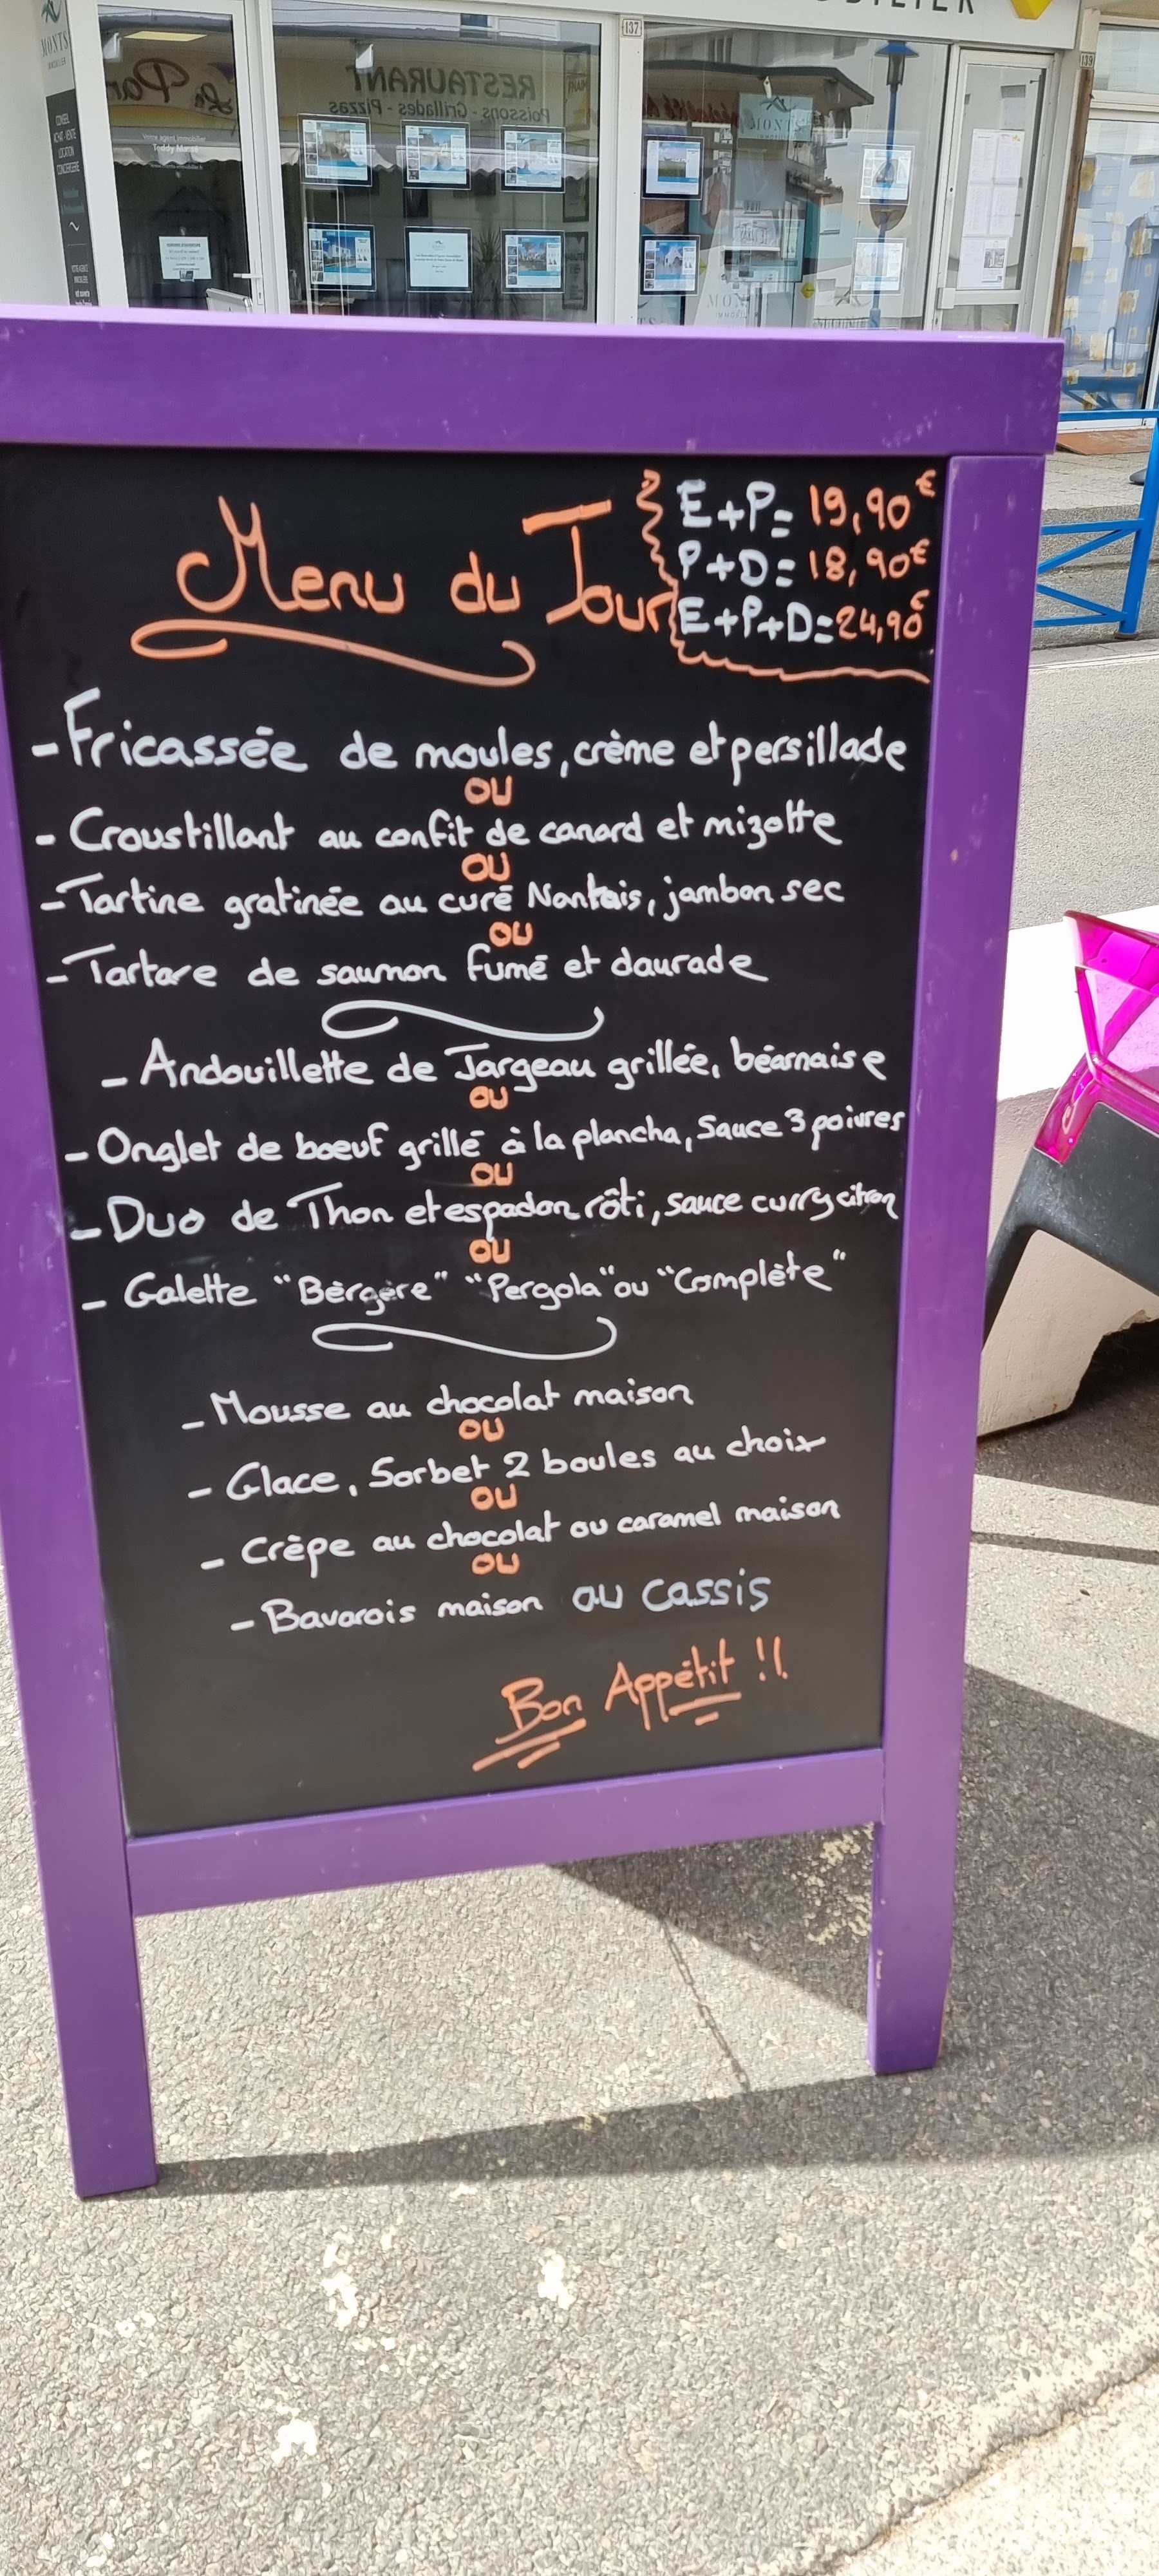 MONTS
BILIER
137
139
RESTAURANT
Poissons - Grillades - Pizzas
La Par
MONTS
Votre agent immobilier
Menu du Jour
E+P= 19,90€
P+D= 18,90€
E+P+D=24,90€
- Fricassée de moules, crème et persillade
OU
- Croustillant au confit de canard et mizotte
OU
- Tartine gratinée au curé Nantais, jambon sec
OU
- Tartare de saumon fumé et daurade
- Andouillette de Jargeau grillée, béarnaise
OU
- Onglet de bœuf grillé à la plancha, Sauce 3 poivres
OU
- Duo de Thon et espadon rôti, sauce curry citron
OU
- Galette "Bèrgère" "Pergola" ou "Complète"
- Mousse au chocolat maison
OU
- Glace, Sorbet 2 boules au choix
OU
- Crêpe au chocolat ou caramel maison
OU
- Bavarois maison au cassis
Bon Appétit !!